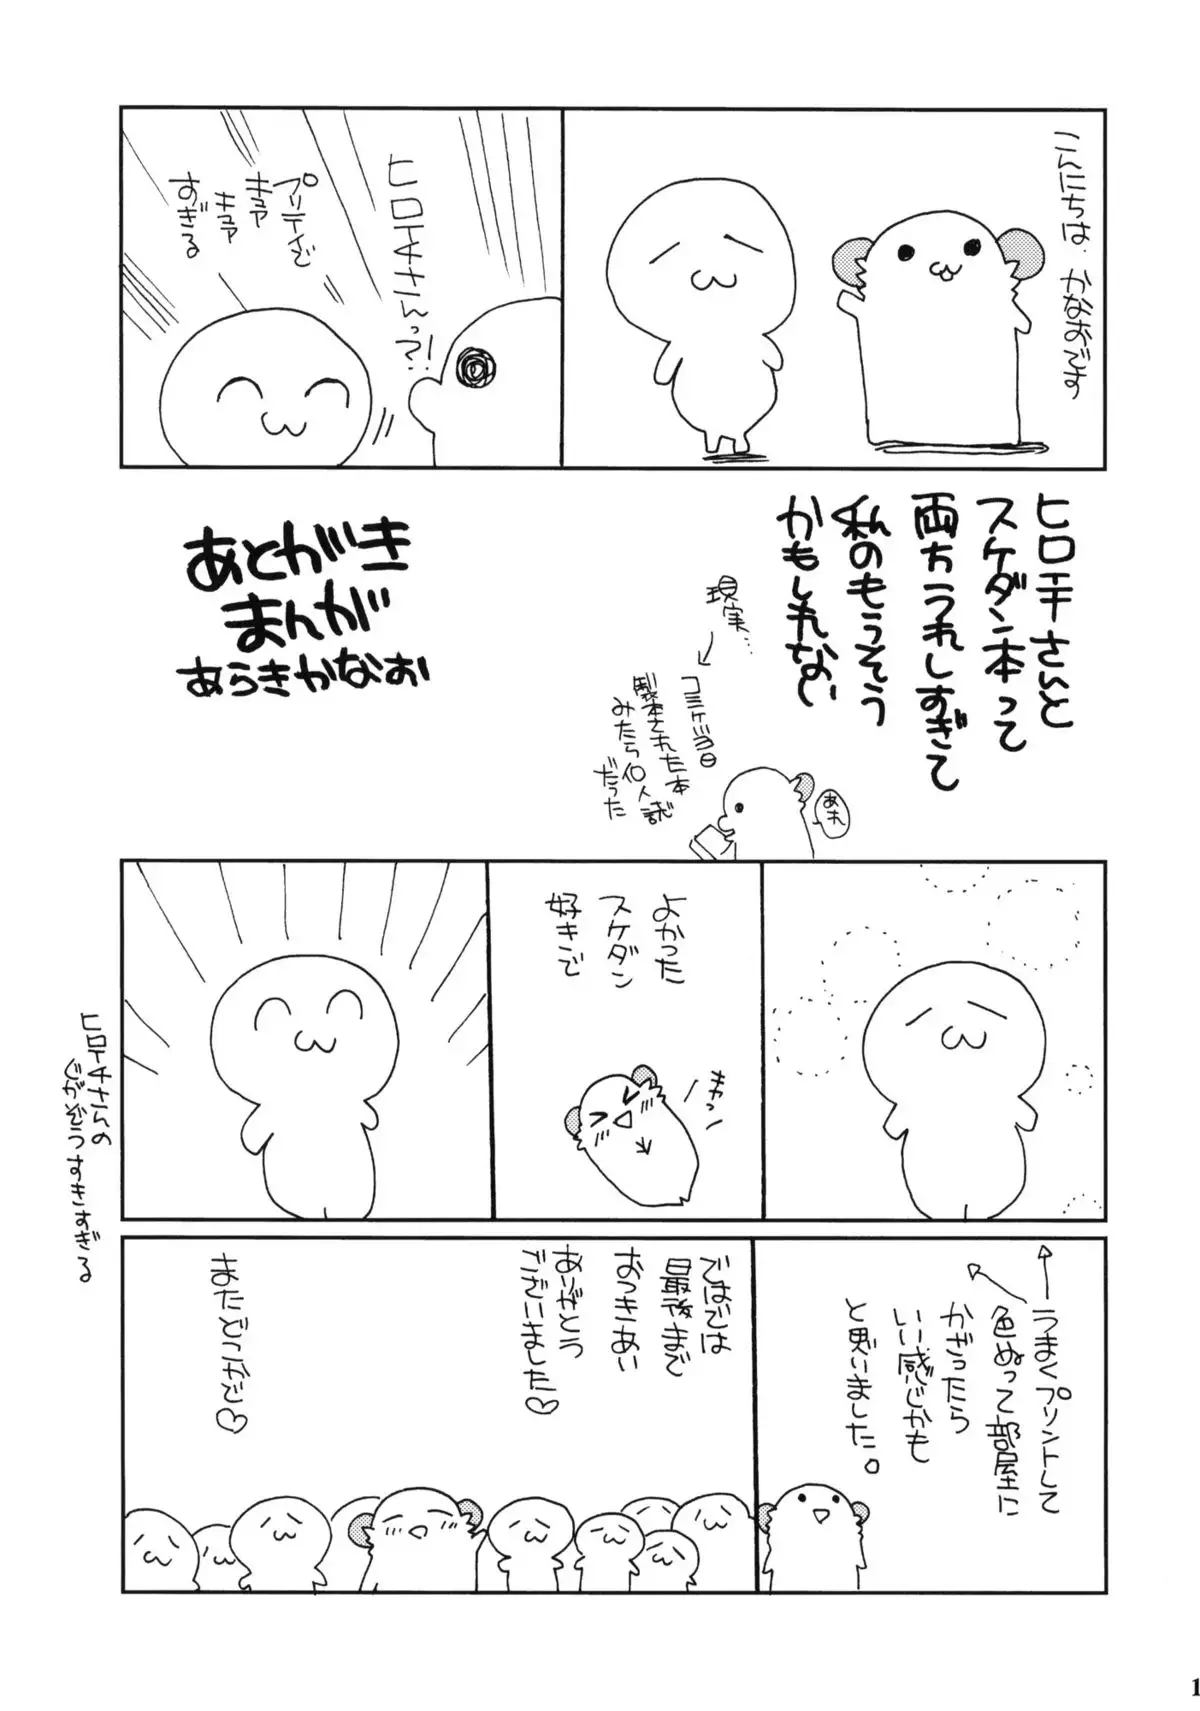 こんにちは、かなおです
ヒロチさんっ?!
プリティで
キュア
キュア
すぎる
ヒロチさんと
スケダン本って
両方うれしすぎて
私のもうそう
かもしれない
現実…
コミケ当日
製本された本
みたら個人誌
だった
あれ
あとがき
まんが
あらきかなお
よかった
スケダン
好きで
キャっ
ヒロチさんの
じがぞうすきすぎる
うまくプリントして
色ぬって部屋に
かざったら
いい感じかも
と思いました。
ではでは
最後まで
おつきあい
ありがとう
ございました♡
またどこかで♡
1